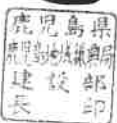 鹿児島県
鹿児島地域振興局
建設部
長印